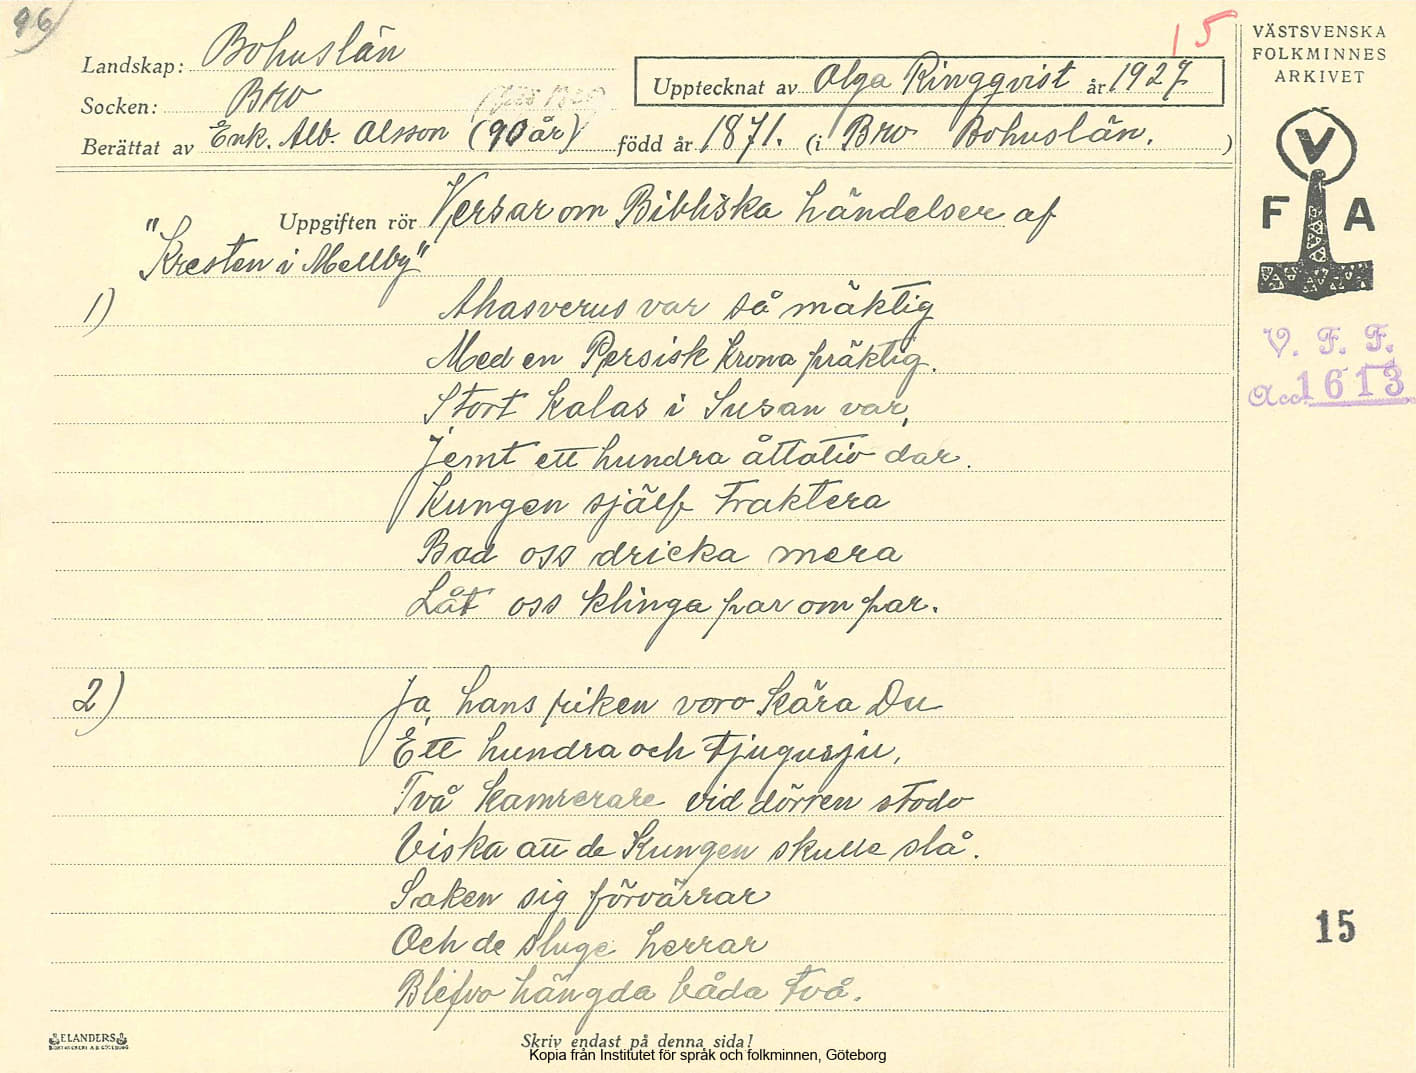 96
15
Landskap: Bohuslän
Socken: Bro
Upptecknat av Olga Ringqvist år 1927
Berättat av Enk. Alb. Olsson (90 år) född år 1871. (i Bro Bohuslän. )
Uppgiften rör Versar om Bibliska händelser af
"Kresten i Mellby"
1) Ahasverus var så mäktig
Med en Persisk krona präktig.
Stort kalas i Susan var,
Jemt ett hundra åttatio dar.
Kungen själf traktera
Bad oss dricka mera
Låt oss klinga par om par.
2) Ja hans riken voro kära Du
Ett hundra och tjugusju,
Två kamrerare vid dörren stodo
Viska att de Kungen skulle slå.
Saken sig förvärrar
Och de sluge herrar
Blefvo hängda båda två.
VÄSTSVENSKA
FOLKMINNES
ARKIVET
V
F A
V. F. F.
Acc. 1613
15
ELANDERS
Skriv endast på denna sida!
Kopia från Institutet för språk och folkminnen, Göteborg